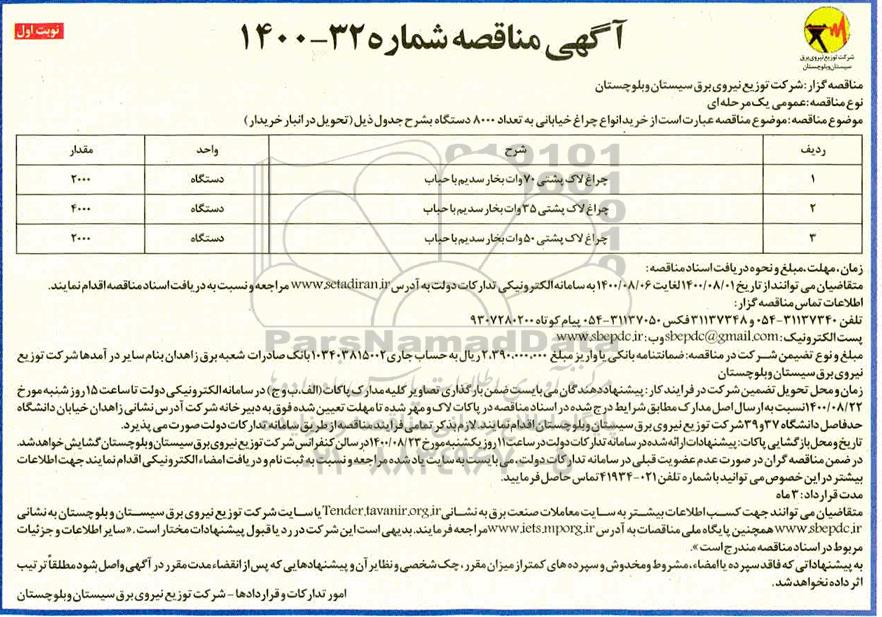 آگهی مناقصه شماره ۳۲-۱۴۰۰
نوبت اول
شرکت توزیع نیروی برق
سیستان وبلوچستان
مناقصه گزار: شرکت توزیع نیروی برق سیستان وبلوچستان
نوع مناقصه: عمومی یک مرحله ای
موضوع مناقصه: موضوع مناقصه عبارت است از خرید انواع چراغ خیابانی به تعداد ۸۰۰۰ دستگاه بشرح جدول ذیل (تحویل در انبار خریدار)
ردیف شرح واحد مقدار
۱ چراغ لاک پشتی ۷۰ وات بخار سدیم با حباب دستگاه ۲۰۰۰
۲ چراغ لاک پشتی ۳۵ وات بخار سدیم با حباب دستگاه ۴۰۰۰
۳ چراغ لاک پشتی ۵۰ وات بخار سدیم با حباب دستگاه ۲۰۰۰
زمان، مهلت، مبلغ و نحوه دریافت اسناد مناقصه:
متقاضیان می توانند از تاریخ ۱۴۰۰/۰۸/۰۱ لغایت ۱۴۰۰/۰۸/۰۶ به سامانه الکترونیکی تدارکات دولت به آدرس www.setadiran.ir مراجعه و نسبت به دریافت اسناد مناقصه اقدام نمایند.
اطلاعات تماس مناقصه گزار:
تلفن ۳۱۱۳۷۳۴۰-۰۵۴ و ۳۱۱۳۷۳۴۸ فکس ۳۱۱۳۷۰۵۰-۰۵۴ پیام کوتاه ۹۳۰۷۲۸۰۲۰۰
پست الکترونیک: sbepdc@gmail.com وب: www.sbepdc.ir
مبلغ و نوع تضمین شرکت در مناقصه: ضمانتنامه بانکی یا واریز مبلغ ۲,۳۹۰,۰۰۰,۰۰۰ ریال به حساب جاری ۱۰۳۴۰۳۸۱۵۰۰۲ بانک صادرات شعبه برق زاهدان بنام سایر درآمدها شرکت توزیع
نیروی برق سیستان وبلوچستان
زمان و محل تحویل تضمین شرکت در فرایند کار: پیشنهاد دهندگان می بایست ضمن بارگذاری تصاویر کلیه مدارک پاکات (الف،ب و ج) در سامانه الکترونیکی دولت تا ساعت ۱۵ روز شنبه مورخ
۱۴۰۰/۰۸/۲۲ نسبت به ارسال اصل مدارک مطابق شرایط درج شده در اسناد مناقصه در پاکات لاک و مهر شده تا مهلت تعیین شده فوق به دبیرخانه شرکت آدرس نشانی زاهدان خیابان دانشگاه
حدفاصل دانشگاه ۳۷ و ۳۹ شرکت توزیع نیروی برق سیستان وبلوچستان اقدام نمایند. لازم بذکر تمامی فرآیند مناقصه از طریق سامانه تدارکات دولت صورت می پذیرد.
تاریخ و محل بازگشایی پاکات: پیشنهادات ارائه شده در سامانه تدارکات دولت در ساعت ۱۱ روز یکشنبه مورخ ۱۴۰۰/۰۸/۲۳ در سالن کنفرانس شرکت توزیع نیروی برق سیستان وبلوچستان گشایش خواهد شد.
در ضمن مناقصه گران در صورت عدم عضویت قبلی در سامانه تدارکات دولت، می بایست به سایت یاد شده مراجعه و نسبت به ثبت نام و دریافت امضاء الکترونیکی اقدام نمایند جهت اطلاعات
بیشتر در این خصوص می توانید با شماره تلفن ۰۲۱-۴۱۹۳۴ تماس حاصل فرمایید.
مدت قرارداد: ۳ ماه
متقاضیان می توانند جهت کسب اطلاعات بیشتر به سایت معاملات صنعت برق به نشانی Tender.tavanir.org.ir یا سایت شرکت توزیع نیروی برق سیستان و بلوچستان به نشانی
www.sbepdc.ir همچنین پایگاه ملی مناقصات به آدرس www.iets.mporg.ir مراجعه فرمایند. بدیهی است این شرکت در رد یا قبول پیشنهادات مختار است. «سایر اطلاعات و جزئیات
مربوط در اسناد مناقصه مندرج است».
به پیشنهاداتی که فاقد سپرده یا امضاء، مشروط و مخدوش و سپرده های کمتر از میزان مقرر، چک شخصی و نظایر آن و پیشنهادهایی که پس از انقضاء مدت مقرر در آگهی واصل شود مطلقاً ترتیب
اثر داده نخواهد شد.
امور تدارکات و قراردادها - شرکت توزیع نیروی برق سیستان وبلوچستان
ParsNamadData